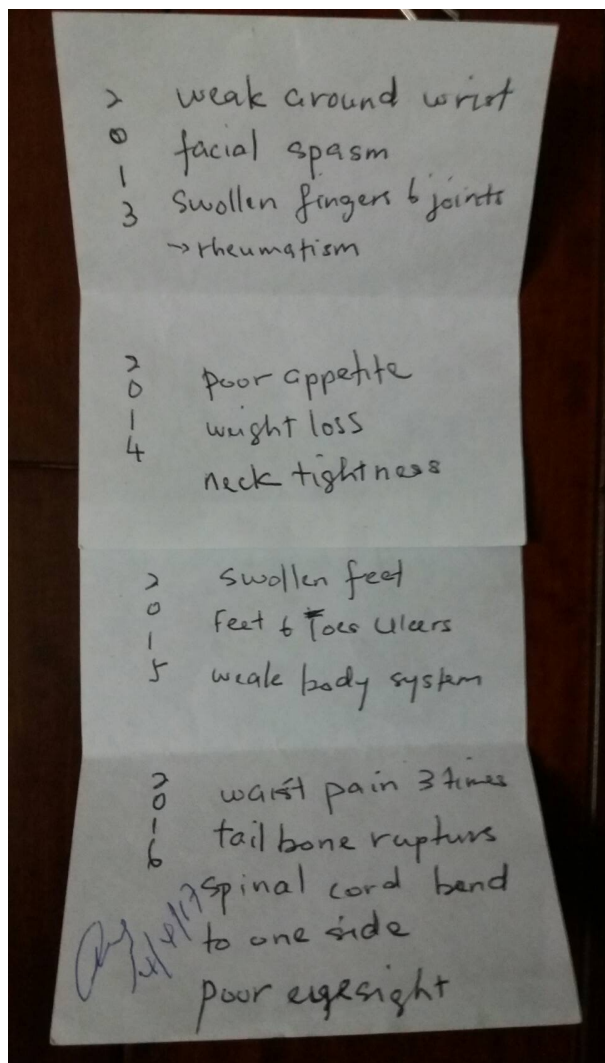 2 weak around wrist
0 facial spasm
1
3 swollen fingers & joints
→ rheumatism
2
0 poor appetite
1 weight loss
4
neck tightness
2 swollen feet
0 Feet & Toes Ulcers
1
5 weak body system
2
0 waist pain 3 times
1
6 tail bone rupturs
spinal cord bend
to one side
poor eyesight